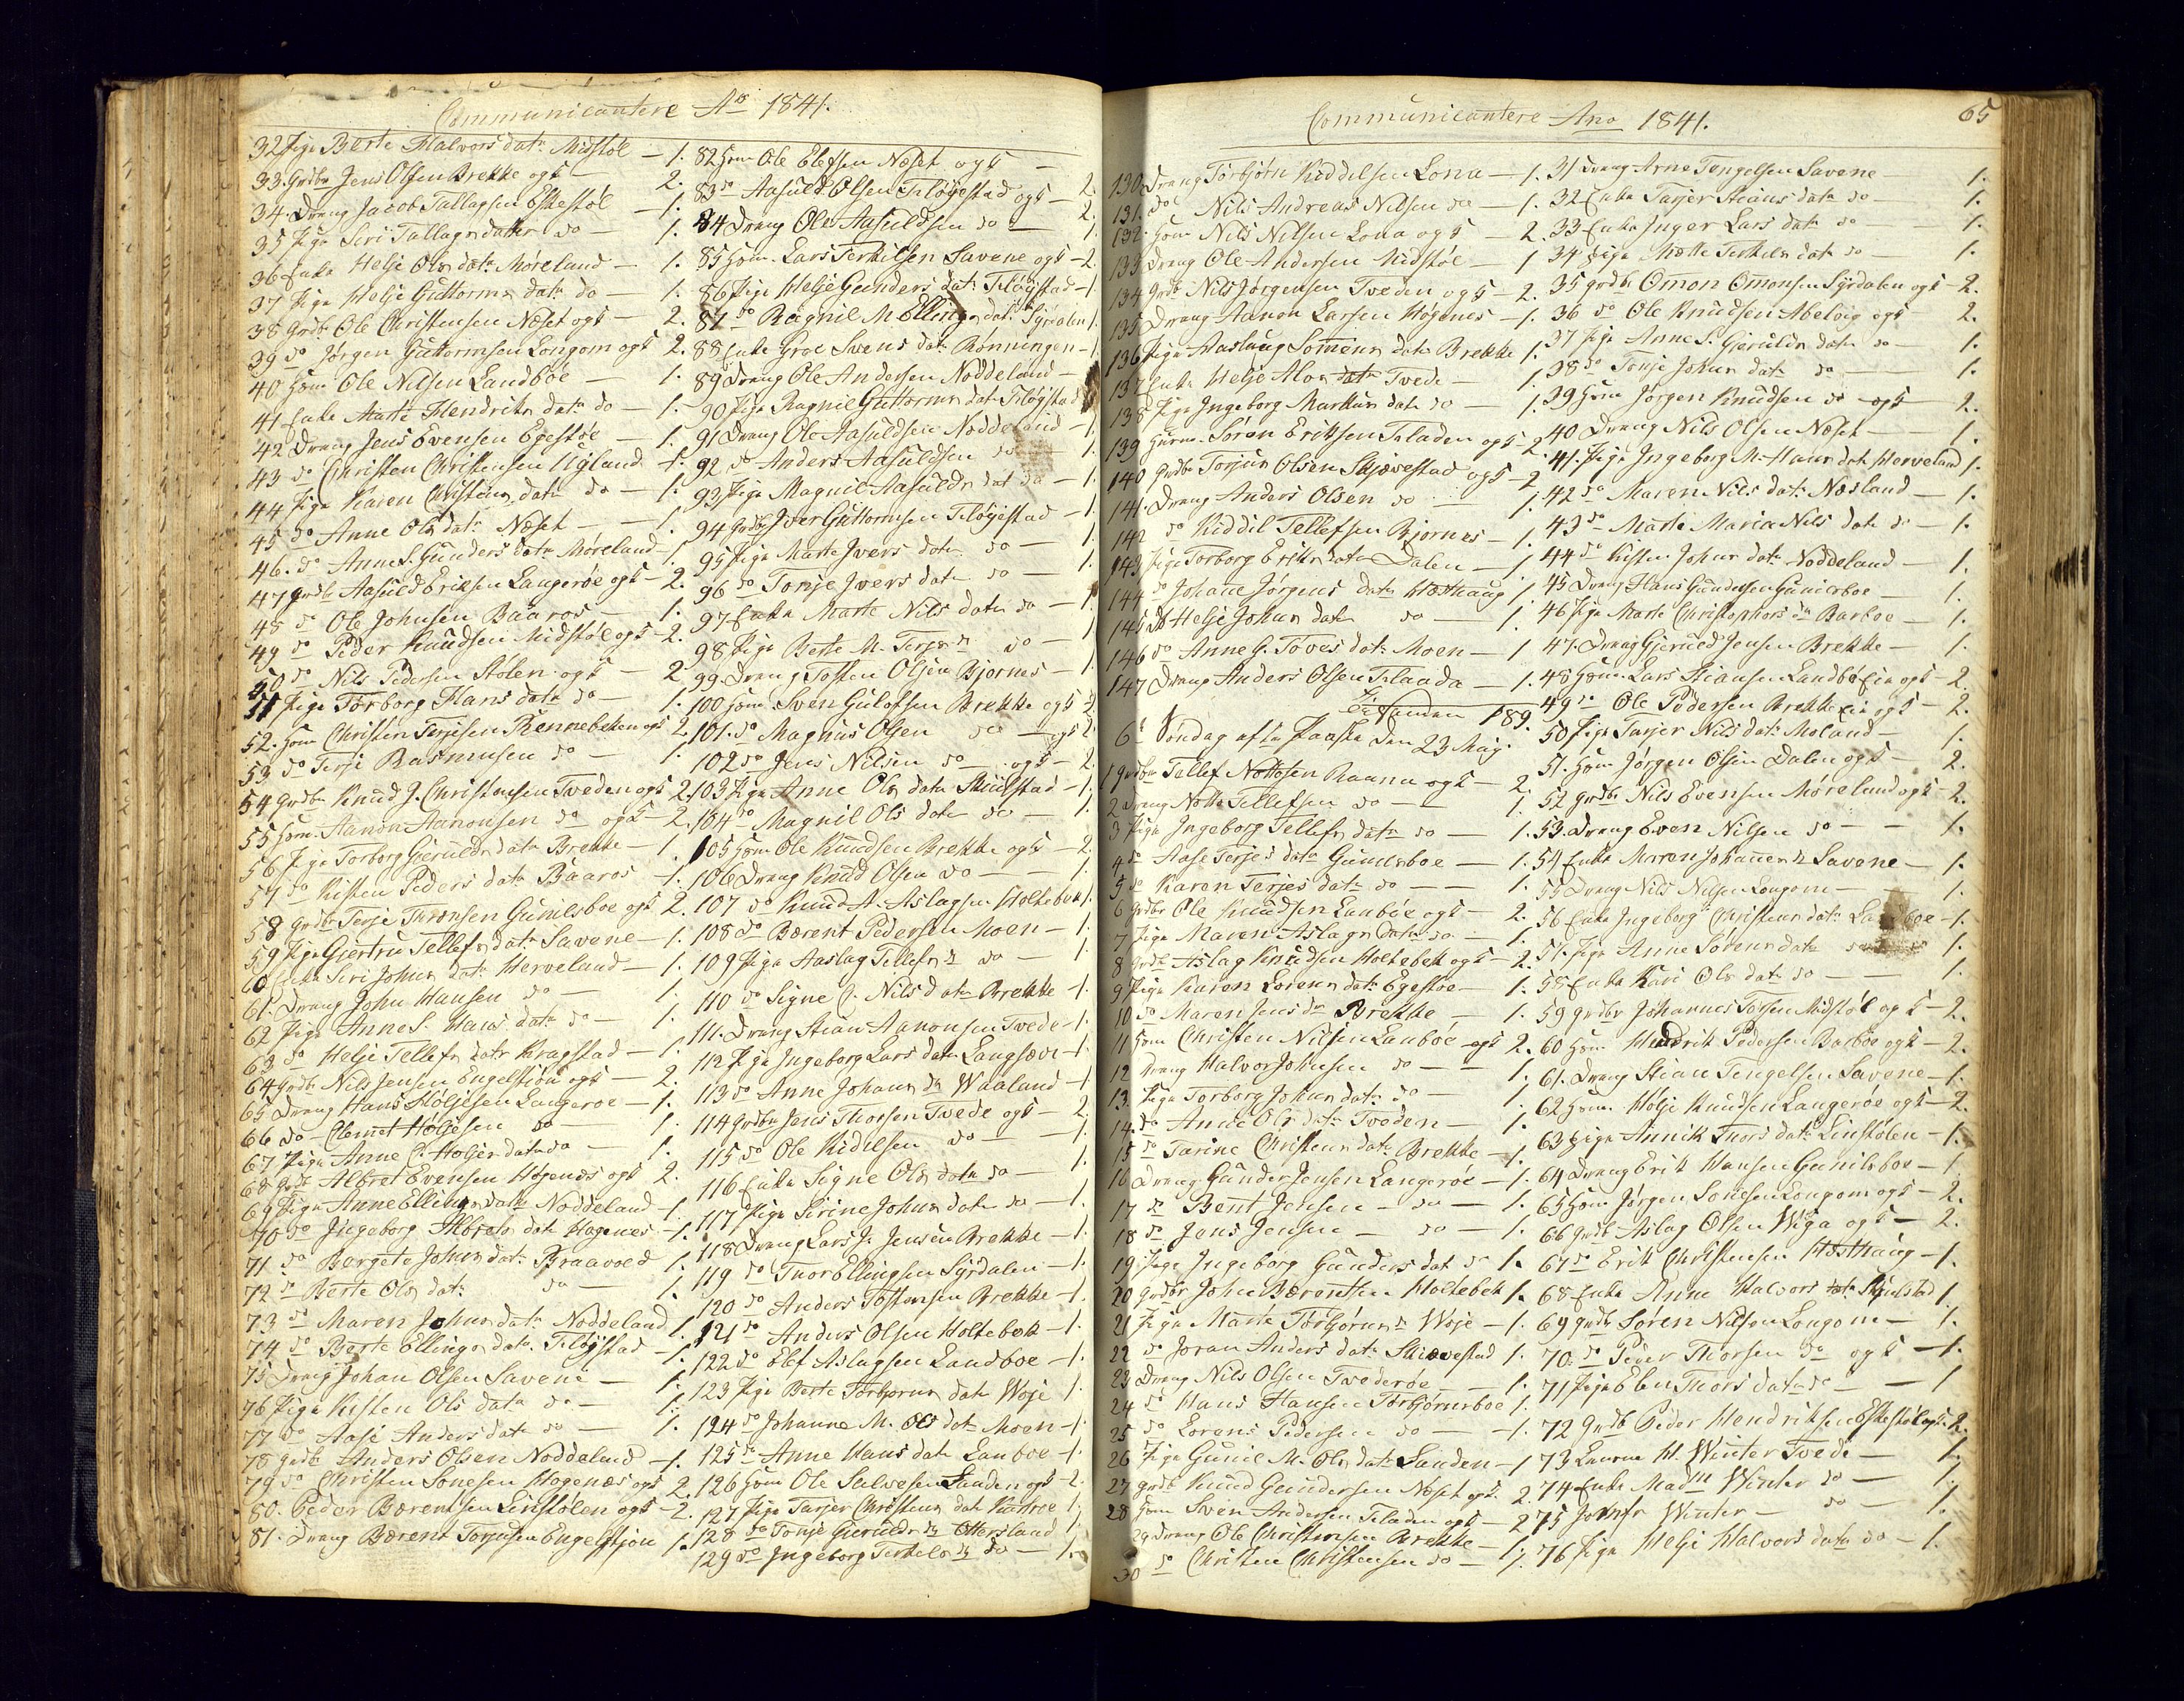 Communicantere Ao 1841.
32 Pige Berte Halvors datr Midstøl — 1.
33. Grdbr Jens Olsen Brekke ogk — 2.
34. Dreng Jacob Tallagsen Eskestøl — 1.
35 Pige Siri Tallags datter do — 1.
36 Enke Helje Ols datr Møreland — 1.
37 Pige Helje Guttorms datr do — 1.
38 Grdbr Ole Christensen Næset ogk — 2.
39 do Jørgen Guttormsen Longom ogk 2.
40 Huusm Ole Nilsen Landbøe — 1.
41 Enke Marte Hendriks datr do — 1.
42 Dreng Jens Evensen Egestøe — 1.
43 do Christen Christensen Ugland 1.
44 Pige Karen Christens datr do — 1.
45 do Anne Ols datr Næset — 1.
46. do Anne S. Gunders datr Møreland — 1.
47 Grdbr Aasuld Eriksen Langerøe ogk — 2.
48 do Ole Johnsen Baaros — 1.
49 do Peder Knudsen Midstøl ogk — 2.
50 do Nils Pedersen Stølen ogk — 2.
51 Pige Torborg Hans datr do — 1.
52. Huusm Christen Terjesen Rennebekken ogk 2.
53 do Terje Rasmusen do — 1.
54 Grdbr Knud J. Christensen Tveden ogk 2.
55 Huusm. Aanon Aanonsen do ogk — 2.
56 Pige Torborg Gjerulds datr Brekke — 1.
57 do Kisten Peders datr Baaros — 1.
58 Grdbr Terje Thronsen Gunilsboe ogk 2.
59 Pige Giertru Tellefs datr Savene — 1.
60 Enke Siri Johns datr Herveland — 1.
61. Dreng John Hansen do — 1.
62 Pige Anne S. Hans datr do — 1.
63 do Helje Tellefs datr Kragstad — 1.
64 Grdbr Nils Jensen Engelstjøn ogk — 2.
65 Dreng Hans Høljesen Langeroe — 1.
66 do Clemet Høljesen do — 1.
67 Pige Anne C. Høljes datr do — 1.
68 Grdbr Albret Evensen Høgenes ogk 2.
69 Pige Anne Ellings datr Noddeland — 1.
70 do Ingeborg Albrets datr Høgenes — 1.
71 do Borgete Johns datr Braavold 1.
72 do Berte Ols datr do 1.
73 do Maren Johns datr Noddeland 1.
74 do Berte Ellings datr Tiløystad — 1.
75 Dreng Johan Olsen Savene — 1.
76 Pige Kisten Ols datr do — 1.
77 do Aase Anders datr do — 1.
78 Grdbr Anders Olsen Noddeland — 1.
79 do Christen Sønesen Høgenæs ogk 2.
80. Peder Bærentsen Linstølen ogk — 2.
81. Dreng Bærent Torjusen Engelstjøn 1.
82 Huusm Ole Elefsen Næset ogk —
83 do Aasuld Olsen Tiløyestad ogk — 2.
84 Dreng Ole Aasuldsen do — 1.
85 Huusm. Lars Terkilsen Savene ogk — 2.
86 Pige Helje Gunders datr Tiløystad — 1.
87 do Ragnil M. Ellings datr Syrdalen 1.
88 Enke Groe Svens datr Rønningen — 1.
89 Dreng Ole Andersen Noddeland —
90 Pige Ragnil Guttorms datr Tiløystad
91 Dreng Ole Aasuldsen Noddeland — 1.
92 do Anders Aasuldsen do — 1.
93 Pige Magnil Aasulds dat do — 1.
94 Grdbr Iver Guttormsen Tiløyestad — 1.
95 Pige Marte Ivers datr do — 1.
96 do Tonje Ivers datr do — 1.
97 Enke Marte Nils datr do — 1.
98 Pige Berte M. Terjes dr do — 1.
99. Dreng Tosten Olsen Bjornes — 1.
100 Huusm Sven Gulofsen Brekke ogk 2.
101. do Magnus Olsen do — ogk 2.
102 do Jens Nilsen do — ogk — 2.
103 Pige Anne Ols datr Skiulstad — 1.
104 do Magnil Ols datr do — 1.
105 Huusm Ole Knudsen Brekke ogk — 2.
106 Dreng Knud Olsen do — 1.
107 do Knud A. Aslagsen Holtebek 1.
108 do Bærent Pedersen Moen — 1.
109 Pige Aaslag Tellefs dr do — 1.
110 do Signe C. Nils datr Brekke — 1.
111. Dreng Stian Aanonsen Tvede — 1.
112 Pige Ingeborg Lars datr Langsæve — 1.
113 do Anne Johans dr Waaland — 1.
114 Grdbr Jens Thorsen Tvede ogk — 2.
115 do Ole Kidilsen do — 1.
116 Enke Signe Ols datr do — 1.
117 Pige Sirine Johns datr do — 1.
118 Dreng Lars Jr. Jensen Brekke — 1.
119 do Thor Ellingsen Syrdalen — 1.
120 do Anders Tostensen Brekke — 1.
121 do Anders Olsen Holtebek — 1.
122 do Elef Aslagsen Landboe — 1.
123 Pige Berte Torbjørns datr Woje 1.
124 do Johanne M. Ols datr Moen — 1.
125 do Anne Hans datr Lanboe — 1.
126 Huusm Ole Salvesen Landen ogk — 2.
127 Pige Tarjer Christens datr 1.
128 do Tonje Gierulds dr Ottersland 1.
129 do Ingeborg Terkels dr do — 1.
Communicantere Ano 1841.
65
130 Dreng Torbjørn Kiddilsen Lona — 1.
131. do Nils Andreas Nilsen do — 1.
132. Huusm Nils Nilsen Lona ogk — 2.
133 Dreng Ole Andersen Midstøl — 1
134 Grdbr Nils Jørgensen Tveden ogk — 2.
135 Dreng Aanon Larsen Høgenes — 1.
136 Pige Aaslaug datr Brekke 1.
137 Enke Helje Alos datr Tvede — 1.
138 Pige Ingeborg Markus datr do — 1.
139 Huusm. Søren Eriksen Tiladen ogk — 2.
140 Grdbr Torjus Olsen Skjævestad ogk — 2
141. Dreng Anders Olsen do — 1.
142 do Kiddil Tellefsen Bjornes — 1.
143 Pige Torborg Eriks datr Dalen — 1.
144 do Johane Jørgens datr Hæsthaug 1.
145 do Helje Johns datr do — 1.
146 do Anne G. Toves datr Moen — 1
147 Dreng Anders Olsen Tilaada — 1.
Tilsamen 189.
6te Søndag efter Paaske den 23 Maij.
1 Grdbr Tellef Nottosen Raana ogk — 2.
2 Dreng Notto Tellefsen do — 1.
3 Pige Ingeborg Tellefs datr do — 1.
4 do Aase Terjes datr Gunilsboe — 1.
5 do Karen Terjes datr do — 1.
6 Grdbr Ole Knudsen Lanbøe ogk — 2.
7 Pige Maren Aslags datr do — 1.
8 Grdbr Aslag Knudsen Holtebek ogk — 2.
9 Pige Karen Lorens datr Egestøe — 1.
10 do Maren Jens dr Brekke — 1.
11 Huusm Christen Nilsen Lanbøe ogk 2.
12 Dreng Halvor Johnsen do — 1.
13. Pige Torborg Johns datr do — 1
14. do Anne Ols datr Tveden — 1.
15 do Tarine Christens datr Brekke — 1.
16 Dreng Gunder Jensen Langerøe — 1.
17 do Bent Jensen do — 1.
18 do Jens Jensen — do — 1.
19 Pige Ingeborg Gunders dat do 1.
20 Grdbr John Bærentsen Holtebek 1.
21 Pige Marte Torbjørns dr Woje — 1.
22 do Joran Anders datr Skiævestad 1.
23 Dreng Nils Olsen Tvederøe — 1.
24 do Hans Hansen Torbjørnsboe 1.
25 do Lorens Pedersen do — 1.
26 Pige Gunil M. Ols datr Landen — 1
27 Grdbr Knud Gundersen Næset ogk. 2.
28 Huusm Sven Andersen Tiladen ogk — 2
29 Dreng Ole Christensen Brekke — 1.
30 do Christen Christensen do — 1.
31 Dreng Arne Tengelsen Savene — 1.
32 Enke Tarjer Stians datr do — 1.
33 Enke Inger Lars datr do — 1.
34 Pige Mætte Terkels datr do — 1.
35 Grdbr Omon Omonsen Syrdalen ogk — 2.
36 do Ole Knudsen Abeløig ogk — 2.
37 Pige Anne S. Gjerulds datr do — 1.
38 do Tonje Johns datr do — 1.
39 Huusm Jørgen Knudsen do ogk — 2.
40 Dreng Nils Olsen Næset — 1.
41. Pige Ingeborg M. Hans datr Herveland 1.
42 do Maren Nils datr Næsland — 1.
43 do Marte Maria Nils datr do — 1.
44 do Kisten Johns datr Noddeland — 1.
45 Dreng Hans Gundersen Gunilsboe — 1.
46 Pige Marte Christophers dr Barboe — 1.
47. Dreng Gjeruld Jensen Brekke — 1.
48 Huusm. Lars Stiansen Landbø Eie ogk — 2.
49 do Ole Pedersen Brekke Eie ogk — 2.
50 Pige Tarjer Nils datr Moland — 1.
51. Huusm Jørgen Olsen Dalen ogk — 2.
52 Grdbr Nils Evensen Møreland ogk — 2.
53. Dreng Even Nilsen do — 1.
54 Enke Maren Johannes dr Savene — 1.
55 Dreng Nils Nilsen Longom — 1.
56 Enke Ingeborg Christens datr Landboe — 1.
57. Pige Anne Sørens datr do 1.
58 Enke Kari Ols datr do — 1.
59 Grdbr Johannes Torsen Midstøl ogk — 2.
60 Huusm Hendrik Pedersen Barbøe ogk — 2.
61. Dreng Stian Tengelsen Savene — 1.
62 Huusm. Hølje Knudsen Langerøe ogk — 2.
63 Pige Annik Thors datr Linstølen — 1.
64 Dreng Erik Hansen Gunilsboe — 1.
65 Huusm Jørgen Sønesen Longom ogk — 2.
66 Grdbr Aslag Olsen Wiga ogk — 2.
67 do Erik Christensen Hæsthaug — 1.
68 Enke Anne Halvors datr Skiulstad 1.
69 Grdbr Søren Nilsen Longom — 1.
70. do Peder Thorsen do ogk — 1.
71 Pige Elen Thors datr do — 1
72 Grdbr Peder Hendriksen Eskestøl ogk. 2.
73 Laurne H. Winter Tvede — 1.
74 Enke Madm Winter do — 1.
75 Jomfr Winter — do — 1.
76 Pige Helje Halvors datr do — 1.